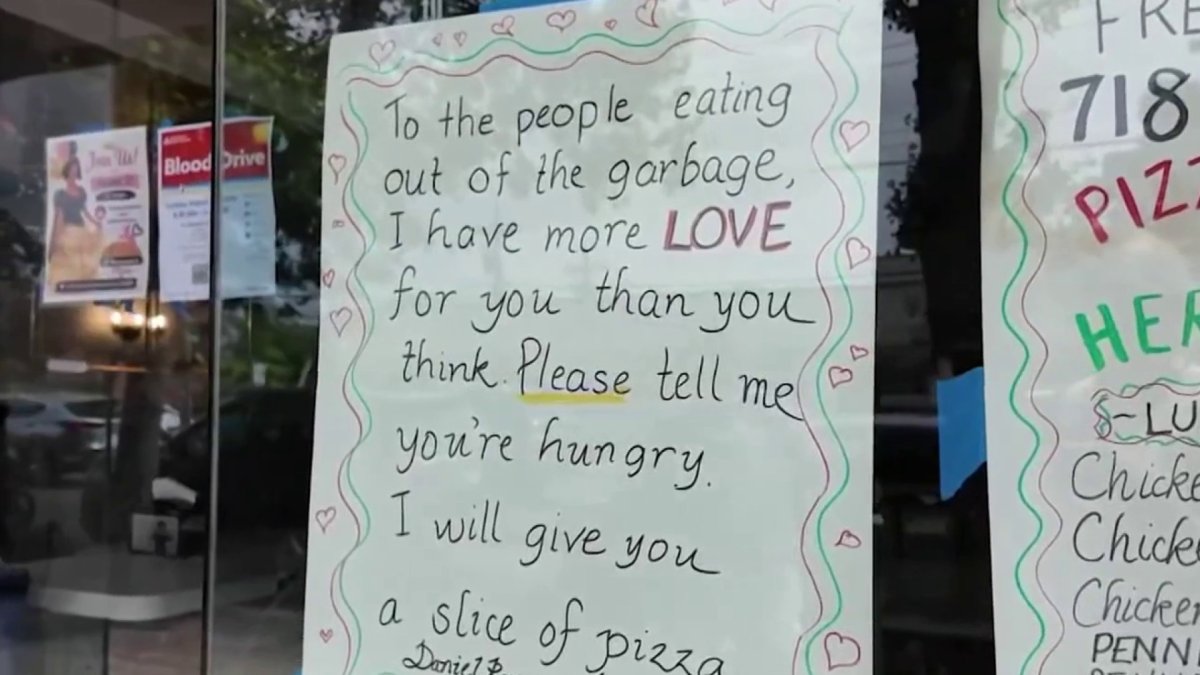 Join Us!
Blood Drive
To the people eating
out of the garbage,
I have more LOVE
for you than you
think. Please tell me
you're hungry.
I will give you
a slice of pizza
FRE
718
PIZZ
HER
LU
Chicke
Chicke
Chicken
PENN